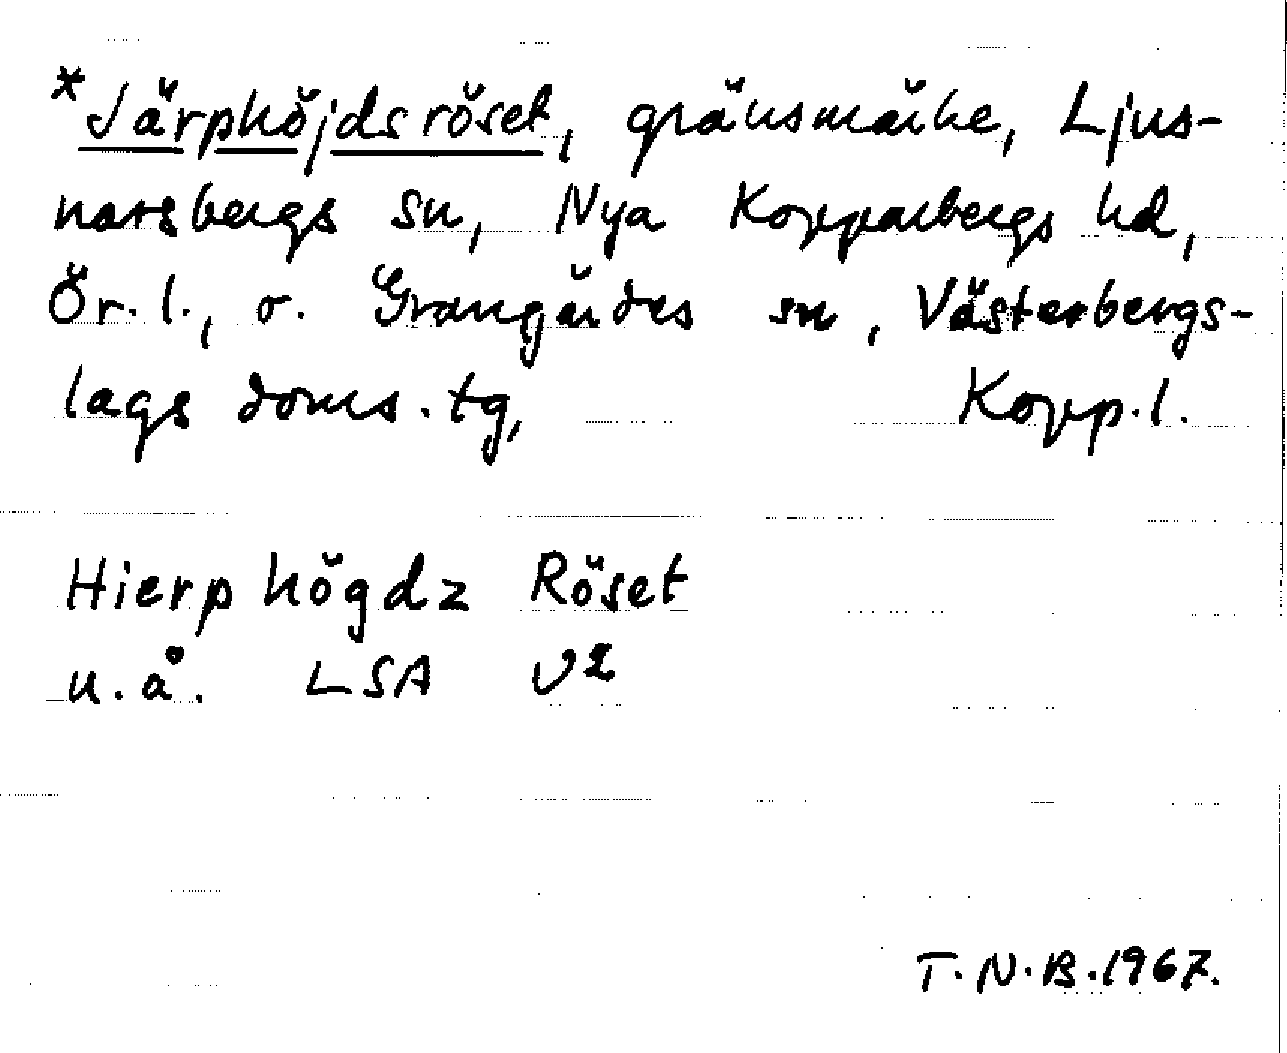 *Järphöjdsröset, gränsmärke, Ljus-
narsbergs sn, Nya Kopparbergs hd,
Ör. l., o. Grangärdes sn, Västerbergs-
lags doms. tg, Kopp. l.
Hierp högdz Röset
u. å. LSA U2
T. N. B. 1967.